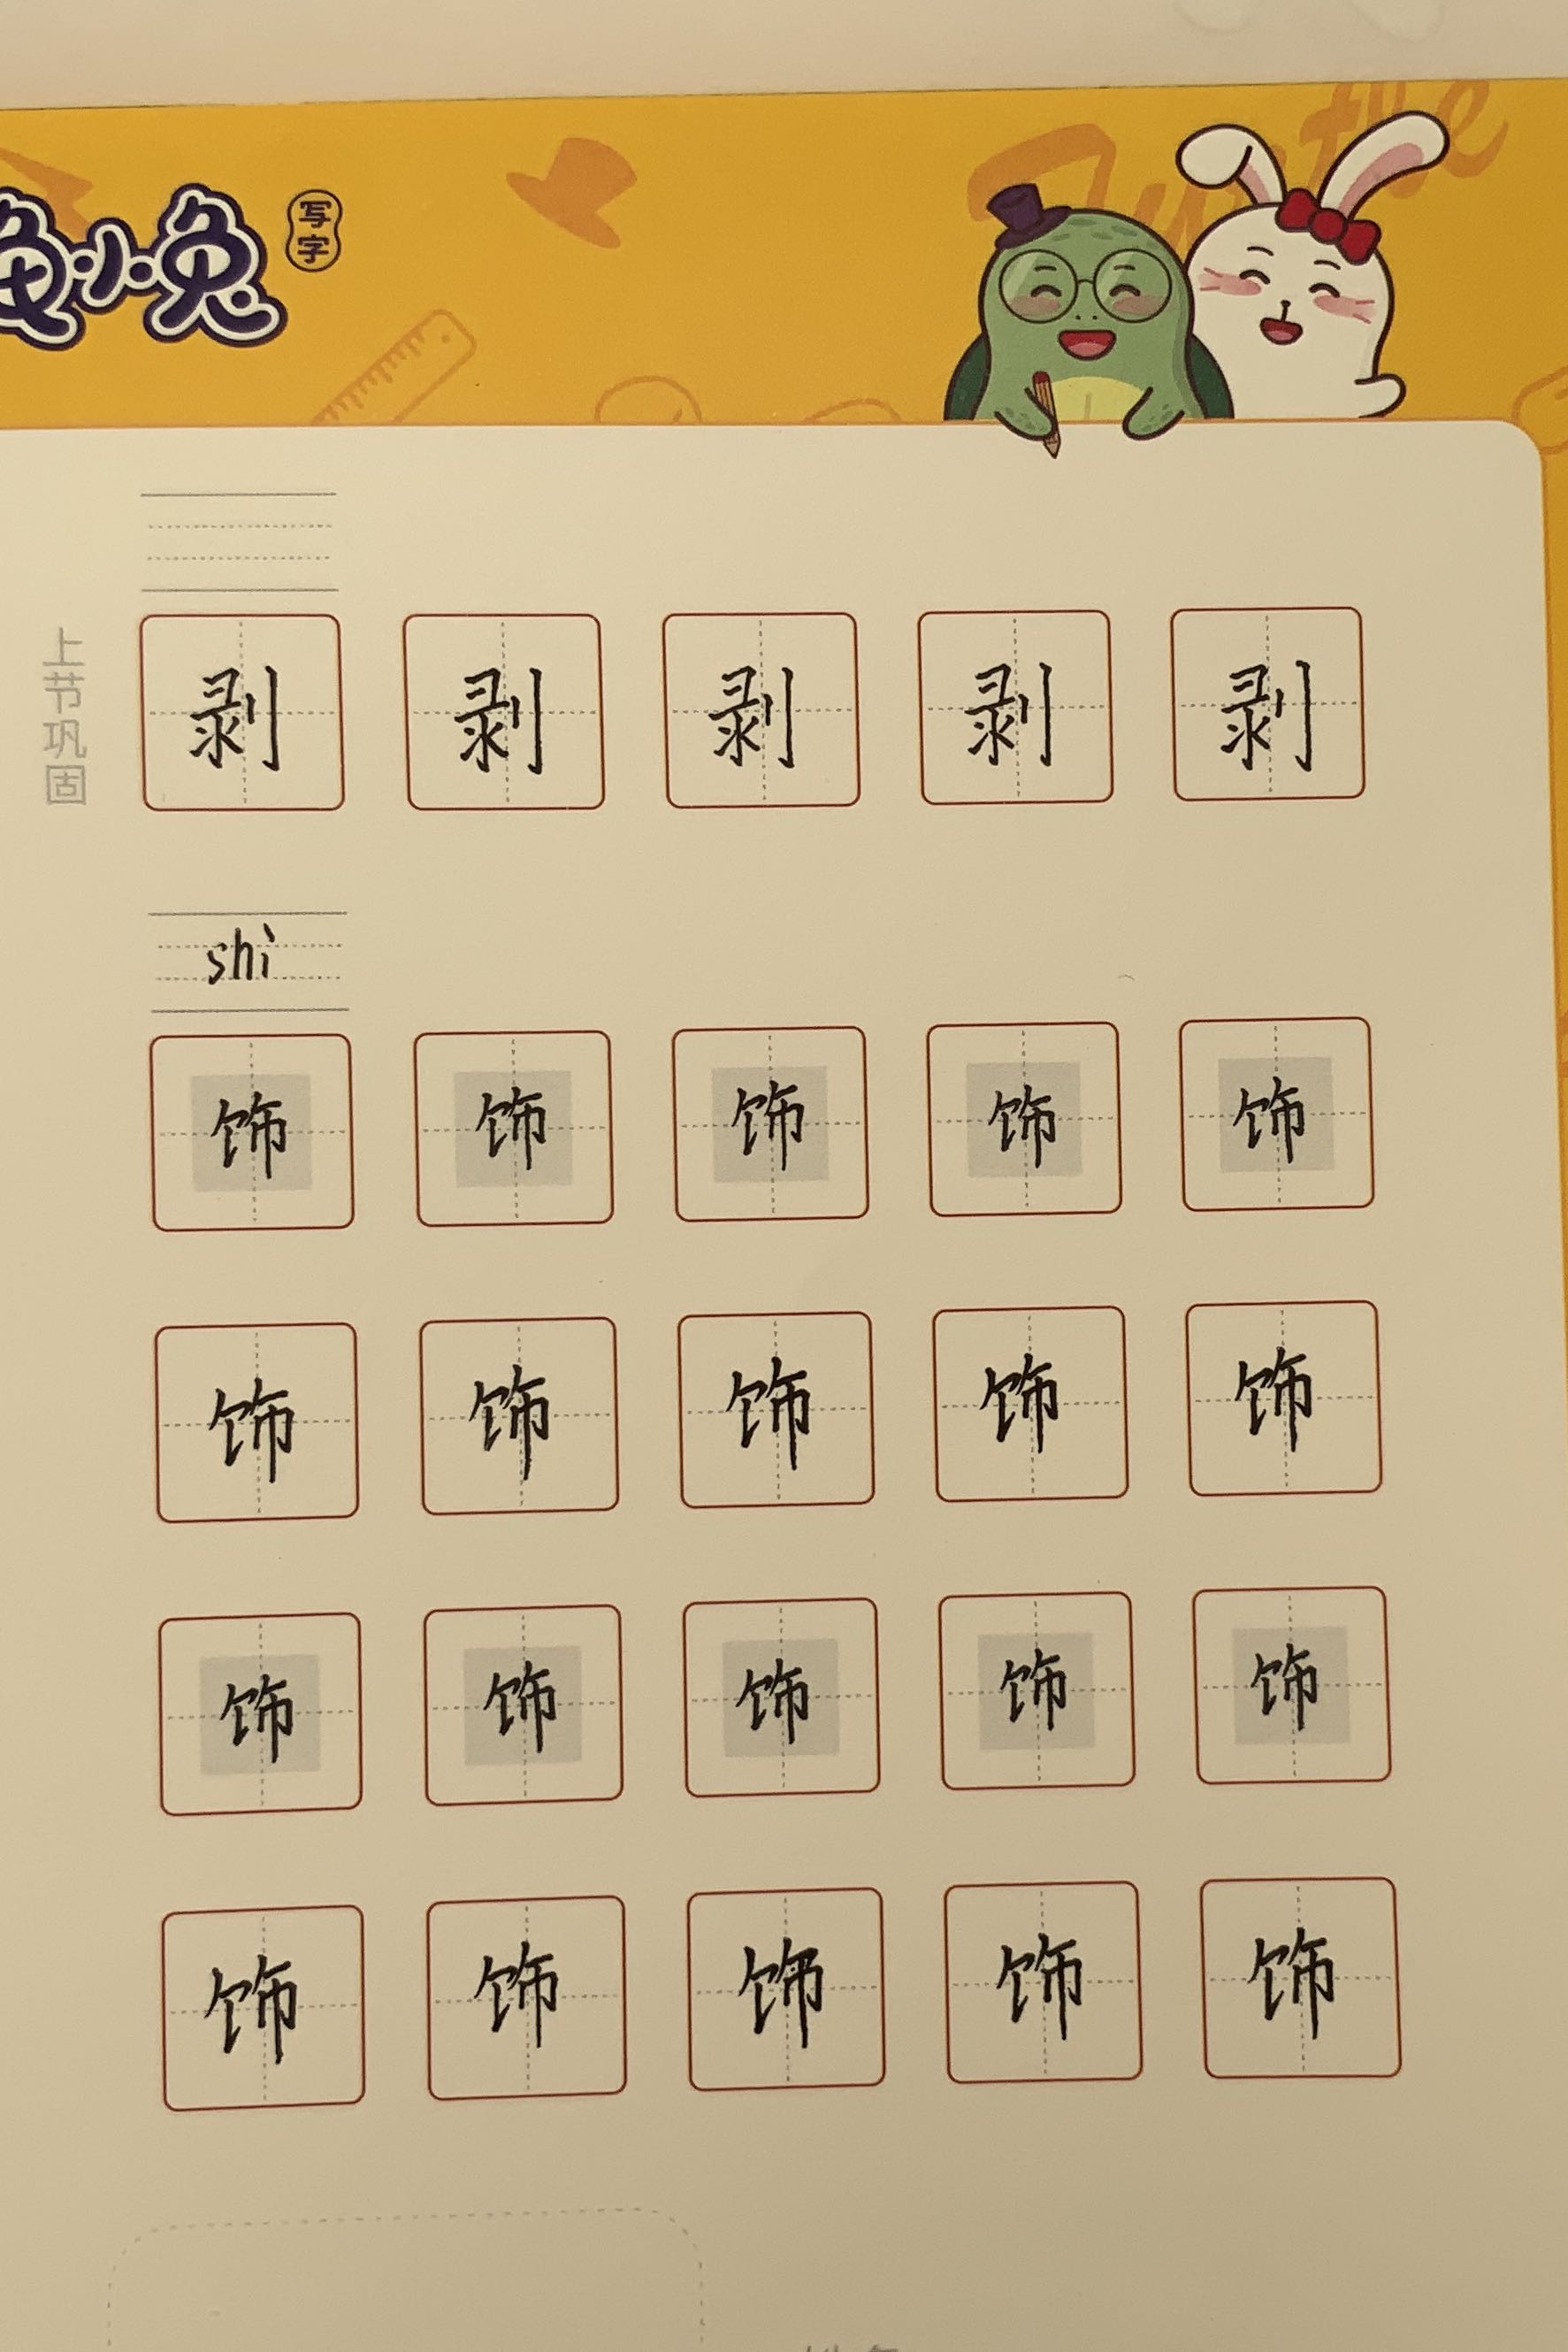 小兔
写字
Turtle
上节巩固
剥 剥 剥 剥 剥
shì
饰 饰 饰 饰 饰
饰 饰 饰 饰 饰
饰 饰 饰 饰 饰
饰 饰 饰 饰 饰